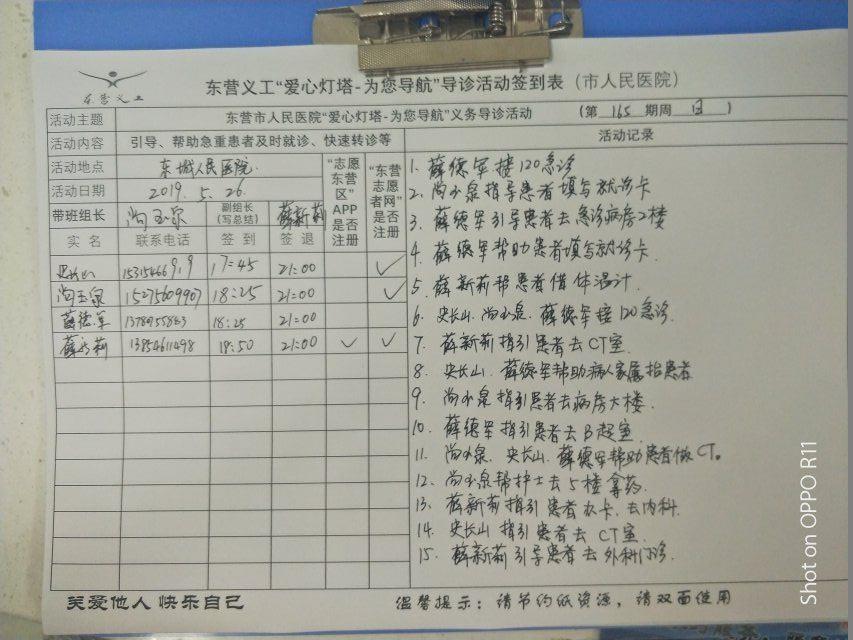 东营义工
东营义工“爱心灯塔-为您导航”导诊活动签到表（市人民医院）
活动主题 东营市人民医院“爱心灯塔-为您导航”义务导诊活动 （第 165 期周 日 ）
活动内容 引导、帮助急重患者及时就诊、快速转诊等
活动地点 东城人民医院
活动日期 2019.5.26
带班组长 尚玉泉 副组长（写总结） 薛新莉
“志愿东营区”APP是否注册
“东营志愿者网”是否注册
实名 联系电话 签到 签退
史长山 17:45 21:00 ✓
尚玉泉 15275609907 18:25 21:00 ✓
薛德军 18:25 21:00
薛新莉 13854611498 18:50 21:00 ✓ ✓
活动记录
1. 薛德军接120急诊
2. 尚玉泉指导患者填写就诊卡
3. 薛德军引导患者去急诊病房2楼
4. 薛德军帮助患者填写就诊卡.
5. 薛新莉帮患者借体温计.
6. 史长山.尚玉泉.薛德军接120急诊.
7. 薛新莉指引患者去CT室.
8. 史长山.薛德军帮助病人家属抬患者
9. 尚玉泉指引患者去病房大楼.
10. 薛德军指引患者去B超室.
11. 尚玉泉.史长山.薛德军帮助患者做CT。
12. 尚玉泉帮护士去5楼拿药.
13. 薛新莉指引患者办卡.去内科.
14. 史长山指引患者去CT室.
15. 薛新莉引导患者去外科门诊.
关爱他人 快乐自己
温馨提示：请节约纸资源，请双面使用
Shot on OPPO R11